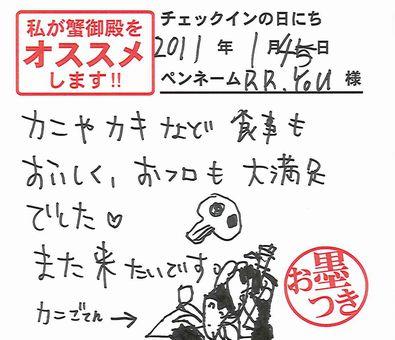 私が蟹御殿を
オススメ
します!!
チェックインの日にち
2011年1月4日
ペンネーム R.R.YOU 様
カニやカキなど 食事も
おいしく、おフロも 大満足
でした♡
また来たいです。
カニごてん→
お墨つき